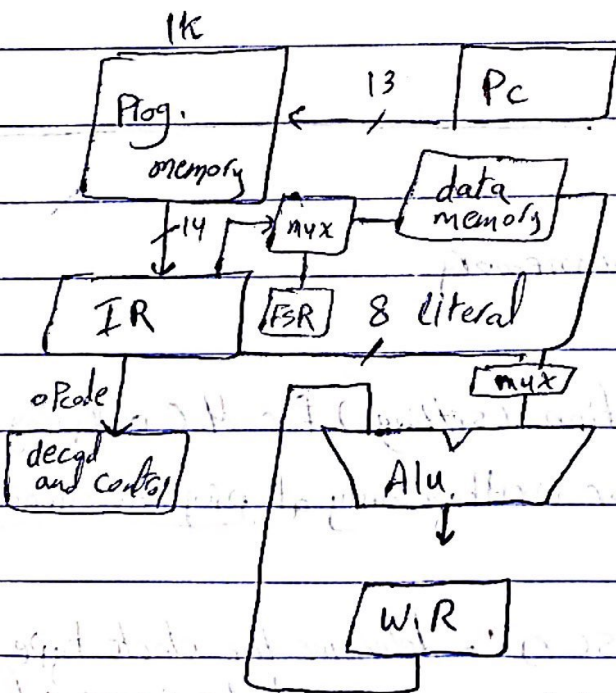 1K
Prog.
memory
13
Pc
14
mux
data
memory
IR
FSR
8 literal
opcode
mux
decod
and control
Alu
W.R.